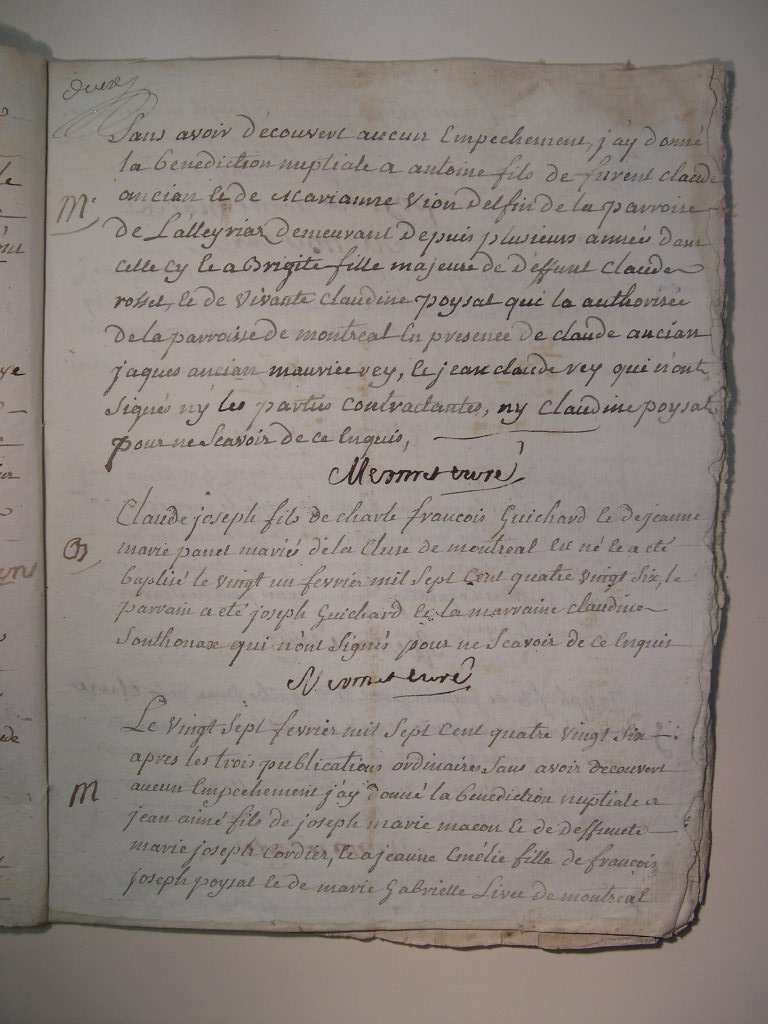 deux
Sans avoir découvert aucun Empechement, j'ay donné
la benediction nuptiale a antoine fils de furent claude
M.
ancian le de Marianne Vion delfin de la parroisse
de Lalleyriaz demeurant depuis plusieurs années dans
celle cy le a Brigite fille majeure de deffunt claude
rosset, le de vivante claudine poysat qui la authorisée
de la parroisse de montreal En presence de claude ancian
jaques ancian maurice vey, le jean claude vey qui n'ont
signés ny les parties contractantes, ny claudine poysat
pour ne scavoir de ce Enquis,
curé
Claude joseph fils de charle francois Guichard le de jeanne
B
marie panet mariés de la Cluse de montreal Est né le a été
baptisé le vingt un fevrier mil sept cent quatre vingt six, le
parrain a été joseph Guichard le la marraine claudine
Sonthonax qui n'ont signés pour ne scavoir de ce Enquis
curé
Le vingt sept fevrier mil sept cent quatre vingt six
apres les trois publications ordinaires sans avoir decouvert
M
aucun Empechement j'ay donné la benediction nuptiale a
jean ainé fils de joseph marie macon le de deffuncte
marie joseph Cordier, le a jeanne Emélie fille de francois
joseph poysat le de marie Gabrielle Livet de montreal